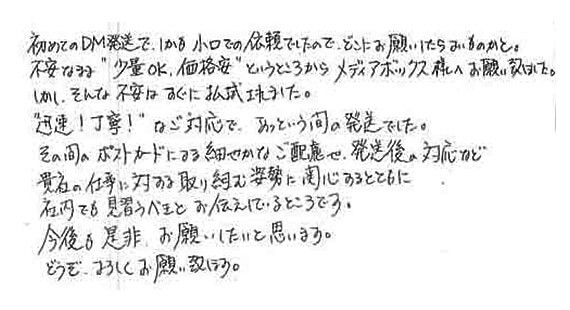 初めてのDM発送で、しかも小口での依頼でしたので、どこにお願いしたらよいものかと。
不安なまま"少量OK、価格安"というところからメディアボックス様へお願い致しました。
しかし、そんな不安はすぐに払拭されました。
"迅速!丁寧!"なご対応で、あっという間の発送でした。
その間のポストカードによる細やかなご配慮や、発送後の対応など
貴社の仕事に対する取り組む姿勢に関心するとともに
社内でも見習うべきとお伝えしているところです。
今後も是非、お願いしたいと思います。
どうぞ、よろしくお願い致します。